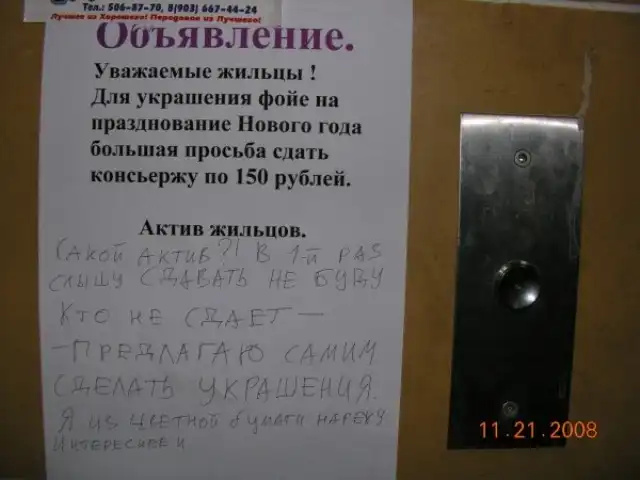 Тел.: 506-87-70, 8(903) 667-44-24
Лучшее из Хорошего! Передовое из Лучшего!
Объявление.
Уважаемые жильцы !
Для украшения фойе на
празднование Нового года
большая просьба сдать
консьержу по 150 рублей.
Актив жильцов.
КАКОЙ АКТИВ?! В 1-й РАЗ
СЛЫШУ СДАВАТЬ НЕ БУДУ
КТО НЕ СДАЕТ —
— ПРЕДЛАГАЮ САМИМ
СДЕЛАТЬ УКРАШЕНИЯ.
Я ИЗ ЦВЕТНОЙ бУМАГИ НАРЕЖУ
ИНТЕРЕСНЕЕ И
11.21.2008